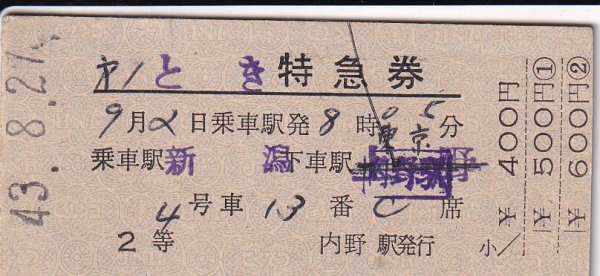 43.8.27
第1とき特急券
9月2日乗車駅発8時05分
東京
乗車駅新潟下車駅
内野駅
4号車13番C席
2等 内野駅発行
小/
¥400円
¥500円①
¥600円②